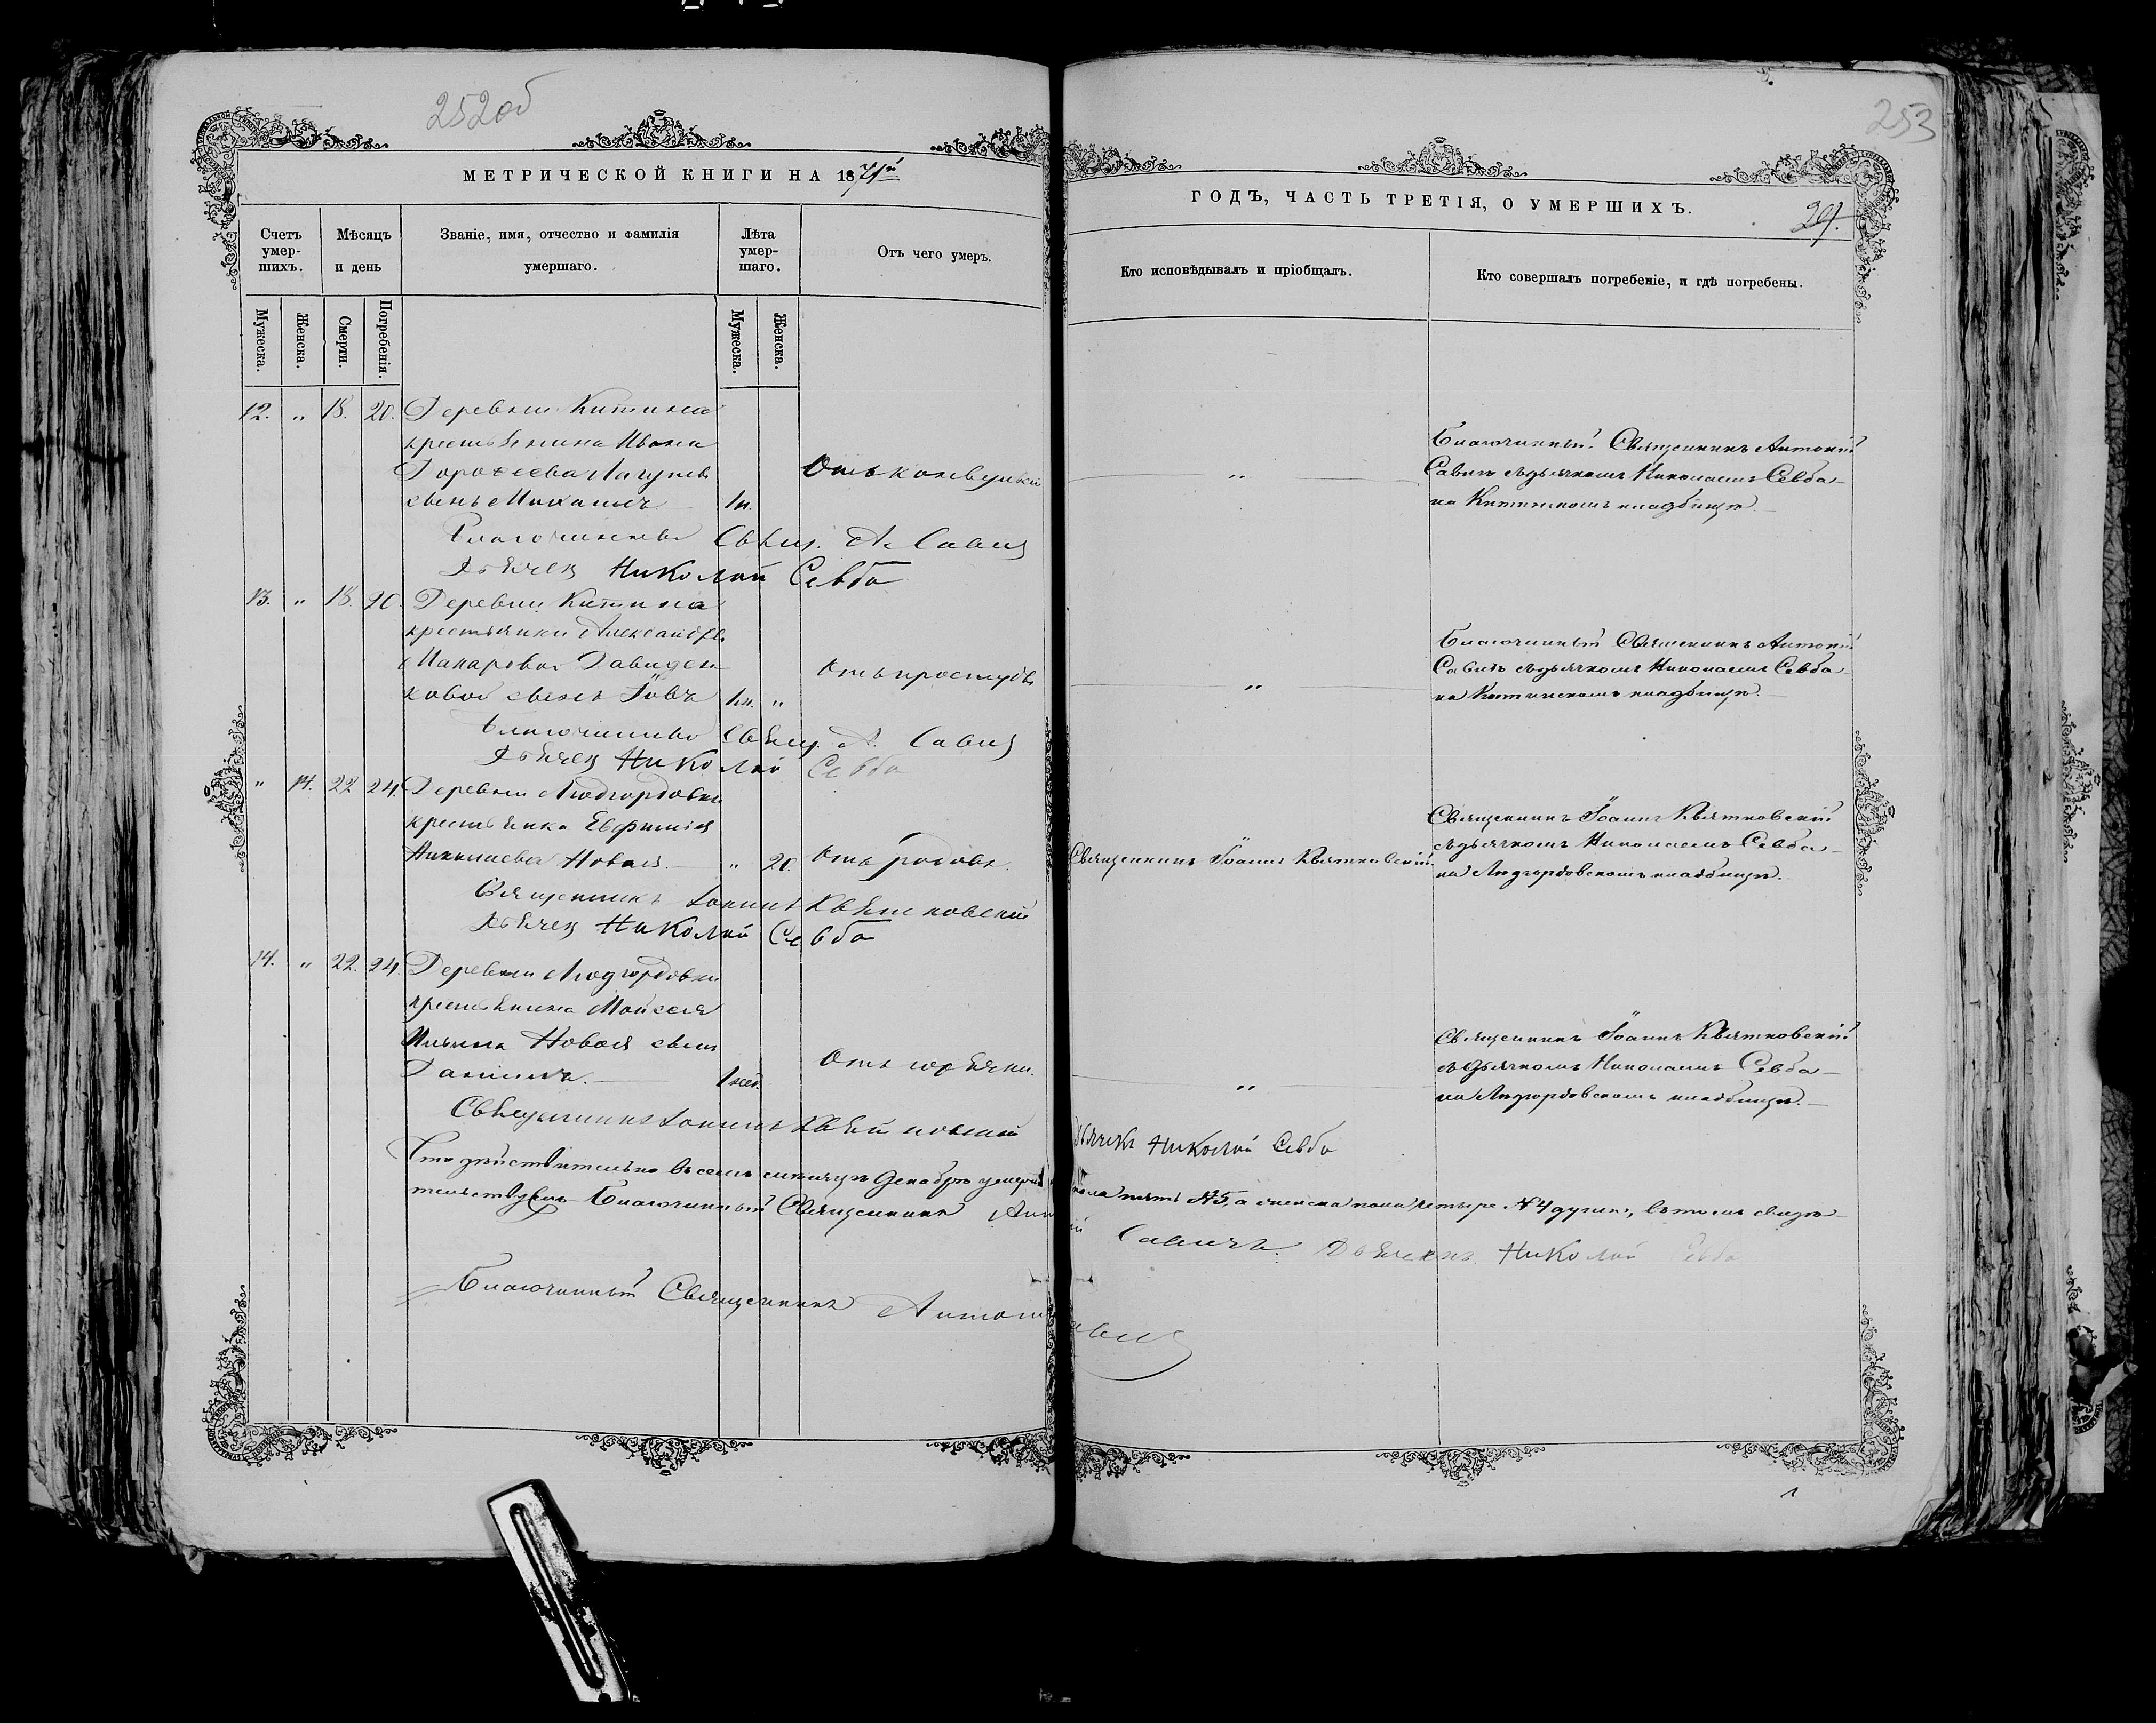 252об
МЕТРИЧЕСКОЙ КНИГИ НА 1871й
Счетъ умер-шихъ.
Мѣсяцъ и день
Званіе, имя, отчество и фамилія умершаго.
Лѣта умер-шаго.
Отъ чего умеръ.
Мужеска.
Женска.
Смерти.
Погребенія.
Мужеска.
Женска.
12. „ 18. 20. Деревни Китина
крестьянина Ивана
Дорофеева
сынъ Михаилъ 1н.
Отъ конвульсіи
Благочинный Свящ. А. Савич
Дьячек Николай Севба
13. „ 18. 20. Деревни Китина
крестьянки Александры
Макаровой Давиден-
ковой сынъ Іовъ 1н. „
Отъ простуды
Благочинный Свящ. А. Савич
Дьячек Николай Севба
„ 14. 22 24. Деревни
крестьянка Евфимія
Николаева Новая. „ 20.
Отъ родовъ.
Священникъ Іоаннъ Квятковский
Дьячек Николай Севба
14. „ 22. 24. Деревни
крестьянина Моисея
Ильина Новая сынъ
Даніилъ. 1нед.
Отъ горячки.
Священникъ Іоаннъ Квятковский
Дьячекъ Николай Севба
Что дѣйствительно въ семъ мѣсяцѣ Декабрѣ
пола пять №5, а женска пола четыре №4 душъ, въ томъ свидѣ-
тельствуемъ Благочинный Священникъ
Савичъ. Дьячекъ Николай Севба
Благочинный Священникъ Антоній
253
ГОДЪ, ЧАСТЬ ТРЕТІЯ, О УМЕРШИХЪ.
29.
Кто исповѣдывалъ и пріобщалъ.
Кто совершалъ погребеніе, и гдѣ погребены.
„
Благочинный Священникъ Антоній
Савичъ съ дьячкомъ Николаемъ Севба
на Китинскомъ кладбищѣ.
„
Благочинный Священникъ Антоній
Савичъ съ дьячкомъ Николаемъ Севба
на Китинскомъ кладбищѣ.
Священникъ Іоаннъ Квятковскій
Священникъ Іоаннъ Квятковскій
съ дьячкомъ Николаемъ Севба
на кладбищѣ.
„
Священникъ Іоаннъ Квятковскій
съ дьячкомъ Николаемъ Севба
на кладбищѣ.